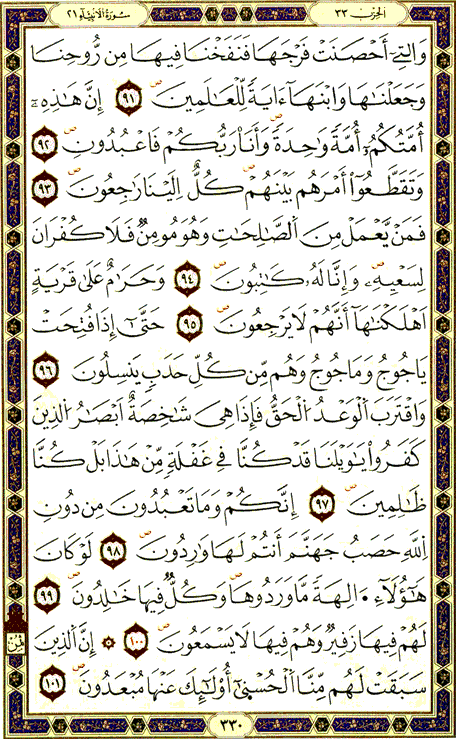 سُورَةُ الأَنبِيَاء ٢١
الحِزْبُ ٣٣
وَالتِےٓ أَحْصَنَتْ فَرْجَهَا فَنَفَخْنَا فِيهَا مِن رُّوحِنَا
وَجَعَلْنَٰهَا وَابْنَهَآ ءَايَةً لِّلْعَٰلَمِينَ ٩١ إِنَّ هَٰذِهِۦٓ
أُمَّتُكُمُۥٓ أُمَّةً وَٰحِدَةً وَأَنَا رَبُّكُمْ فَاعْبُدُونِ ٩٢
وَتَقَطَّعُوٓا۟ أَمْرَهُم بَيْنَهُمْ كُلٌّ اِلَيْنَا رَٰجِعُونَ ٩٣
فَمَنْ يَّعْمَلْ مِنَ الصَّٰلِحَٰتِ وَهُوَ مُومِنٌ فَلَا كُفْرَانَ
لِسَعْيِهِۦ وَإِنَّا لَهُۥ كَٰتِبُونَ ٩٤ وَحَرَٰمٌ عَلَىٰ قَرْيَةٍ
اَهْلَكْنَٰهَآ أَنَّهُمْ لَا يَرْجِعُونَ ٩٥ حَتَّىٰٓ إِذَا فُتِحَتْ
يَاجُوجُ وَمَاجُوجُ وَهُم مِّن كُلِّ حَدَبٍ يَنسِلُونَ ٩٦
وَاقْتَرَبَ اَلْوَعْدُ اُلْحَقُّ فَإِذَا هِيَ شَٰخِصَةٌ اَبْصَٰرُ اُلذِينَ
كَفَرُوا۟ يَٰوَيْلَنَا قَدْ كُنَّا فِي غَفْلَةٍ مِّنْ هَٰذَا بَلْ كُنَّا
ظَٰلِمِينَ ٩٧ إِنَّكُمْ وَمَا تَعْبُدُونَ مِن دُونِ
اِللَّهِ حَصَبُ جَهَنَّمَ أَنتُمْ لَهَا وَٰرِدُونَ ٩٨ لَوْ كَانَ
هَٰٓؤُلَآءِ اٰلِهَةً مَّا وَرَدُوهَا وَكُلٌّ فِيهَا خَٰلِدُونَ ٩٩
لَهُمْ فِيهَا زَفِيرٌ وَهُمْ فِيهَا لَا يَسْمَعُونَ ١٠٠ ۞ إِنَّ اَلذِينَ
سَبَقَتْ لَهُم مِّنَّا اَلْحُسْنَىٰٓ أُو۟لَٰٓئِكَ عَنْهَا مُبْعَدُونَ ١٠١
ثمن
٣٣٠